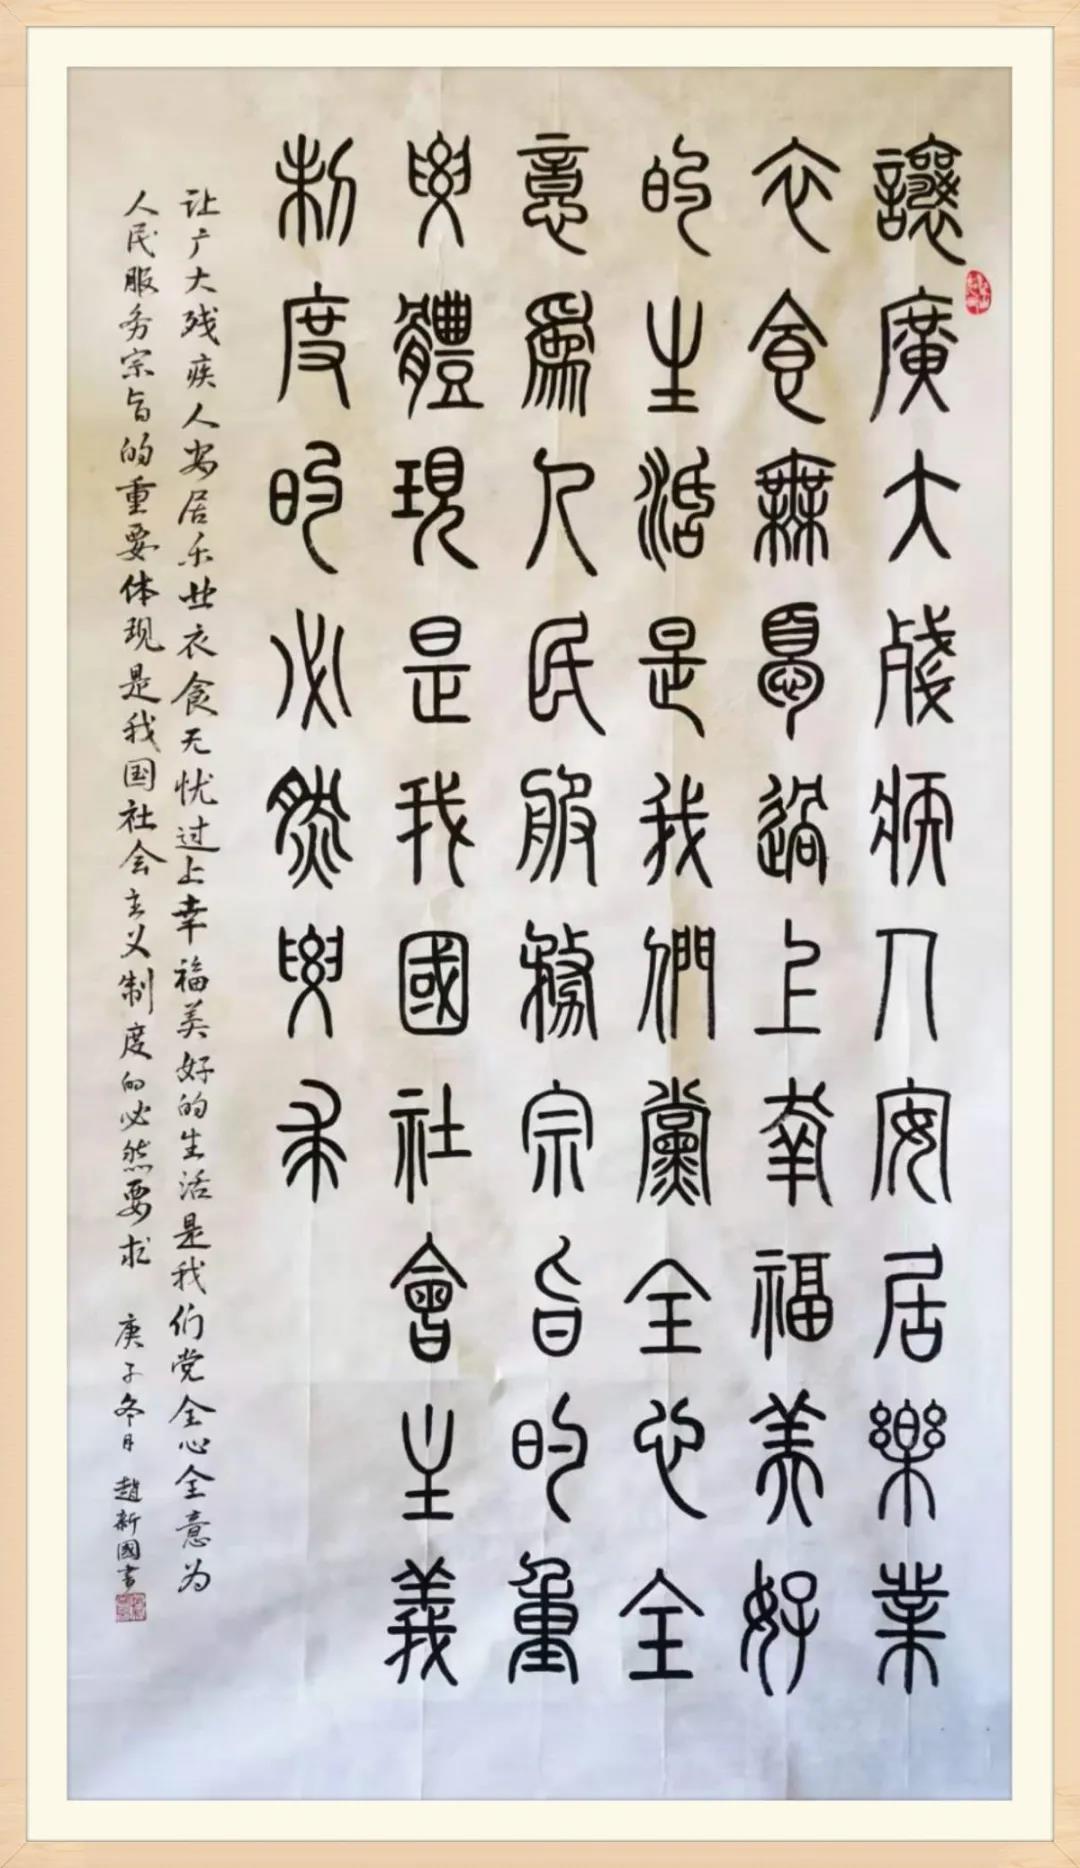 讓廣大殘疾人安居樂業
衣食無憂過上幸福美好
的生活是我們黨全心全
意爲人民服務宗旨的重
要體現是我國社會主義
制度的必然要求
让广大残疾人安居乐业衣食无忧过上幸福美好的生活是我们党全心全意为
人民服务宗旨的重要体现是我国社会主义制度的必然要求 庚子冬月 趙新國書